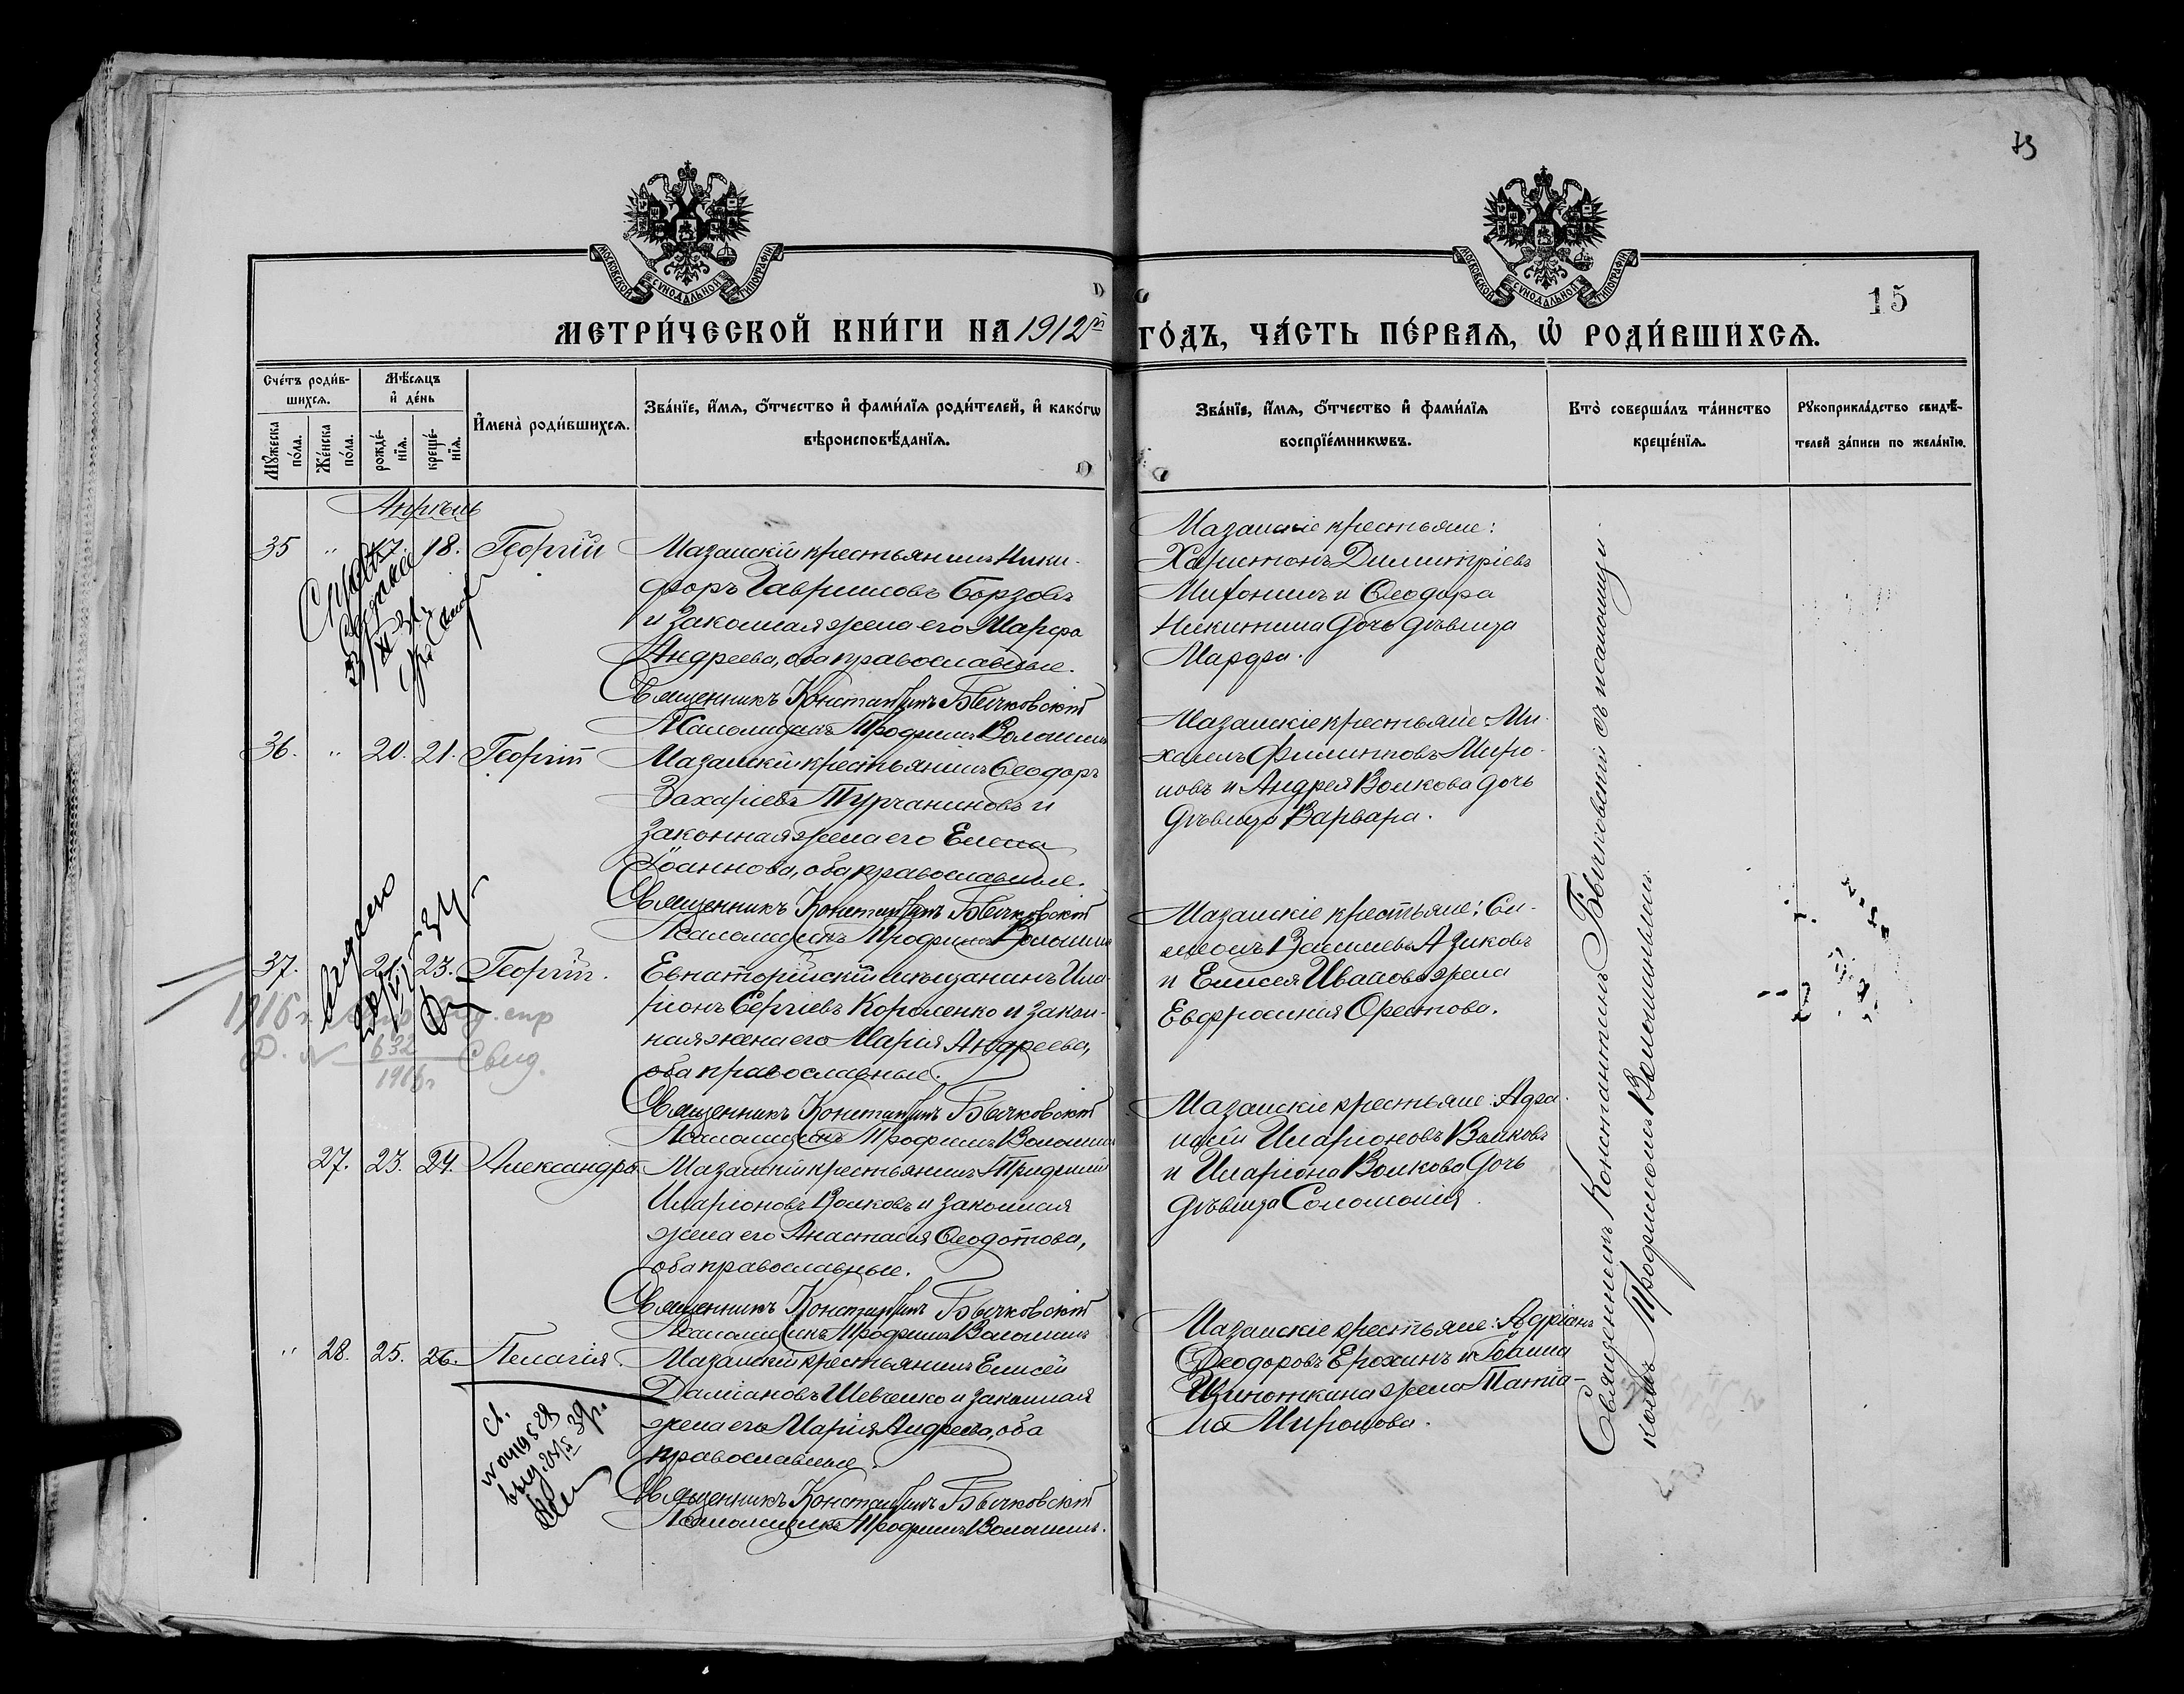 75
МОСКОВСКОЙ СѴНОДАЛЬНОЙ ТИПОГРАФІИ
МОСКОВСКОЙ СѴНОДАЛЬНОЙ ТИПОГРАФІИ
15
МЕТРИ́ЧЕСКОЙ КНИ́ГИ НА 1912й ГО́ДЪ, ЧА́СТЬ ПЕ́РВАѦ, Ѡ҆ РОДИ́ВШИХСѦ.
Сче́тъ роди́в-
шихсѧ.
Мꙋ́жеска
по́ла.
Же́нска
по́ла.
Мѣ́сѧцъ
и҆ де́нь
рожде́-
нїѧ.
креще́-
нїѧ.
И҆мена̀ роди́вшихсѧ.
Зва́нїе, и҆́мѧ, ѻ҆́тчество и҆ фами́лїѧ роди́телей, и҆ како́гѡ
вѣроисповѣ́данїѧ.
Зва́нїе, и҆́мѧ, ѻ҆́тчество и҆ фами́лїѧ
воспрїе́мникѡвъ.
Кто̀ соверша́лъ та́инство
креще́нїѧ.
Рꙋкоприкла́дство свидѣ́-
телей за́писи по жела́нїю.
Апрѣль
35 " 17. 18. Георгій
Мазанскій крестьянинъ Ники-
форъ Гавриловъ Борзовъ
и законная жена его Марфа
Андреева, оба православные.
Священникъ Константинъ Бычковскій
Псаломщикъ Трофимъ Волошинъ
Мазанскіе крестьяне:
Харитонъ Димитріевъ
и Ѳеодора
Никитина дочь дѣвица
Марфа.
36. " 20. 21. Георгій
Мазанскій крестьянинъ Ѳеодоръ
Захаріевъ Турчаниновъ и
законная жена его Елена
Іоаннова, оба православные.
Священникъ Константинъ Бычковскій
Псаломщикъ Трофимъ Волошинъ
Мазанскіе крестьяне: Ми-
хаилъ Филипповъ Миро-
новъ и Андрея Волкова дочь
дѣвица Варвара.
Выдано
37. 23. Георгій.
Евпаторійскій мѣщанинъ Ила-
ріонъ Сергіевъ Короленко и закон-
ная жена его Марія Андреева,
оба православные.
Священникъ Константинъ Бычковскій
Псаломщикъ Трофимъ Волошинъ
Мазанскіе крестьяне: Си-
меонъ Васильевъ Азиковъ
и Елисея Иванова жена
Евфросинія Орестова.
1916 г.
№ 632 Свид.
1916 г
27. 23. 24. Александра
Мазанскій крестьянинъ Трифилій
Иларіоновъ Волковъ и законная
жена его Анастасія Ѳеодотова,
оба православные.
Священникъ Константинъ Бычковскій
Псаломщикъ Трофимъ Волошинъ
Мазанскіе крестьяне: Афа-
насій Иларіоновъ Волковъ
и Иларіона Волкова дочь
дѣвица Соломонія.
" 28. 25. 26. Пелагія.
Мазанскій крестьянинъ Елисей
Даміановъ Шевченко и законная
жена его Марія Андреева, оба
православные.
Священникъ Константинъ Бычковскій
Псаломщикъ Трофимъ Волошинъ.
Мазанскіе крестьяне: Адріанъ
Ѳеодоровъ Ерохинъ и Іоанна
жена Татіа-
на Миронова.
Священникъ Константинъ Бычковскій съ псаломщи-
комъ Трофимомъ Волошинымъ